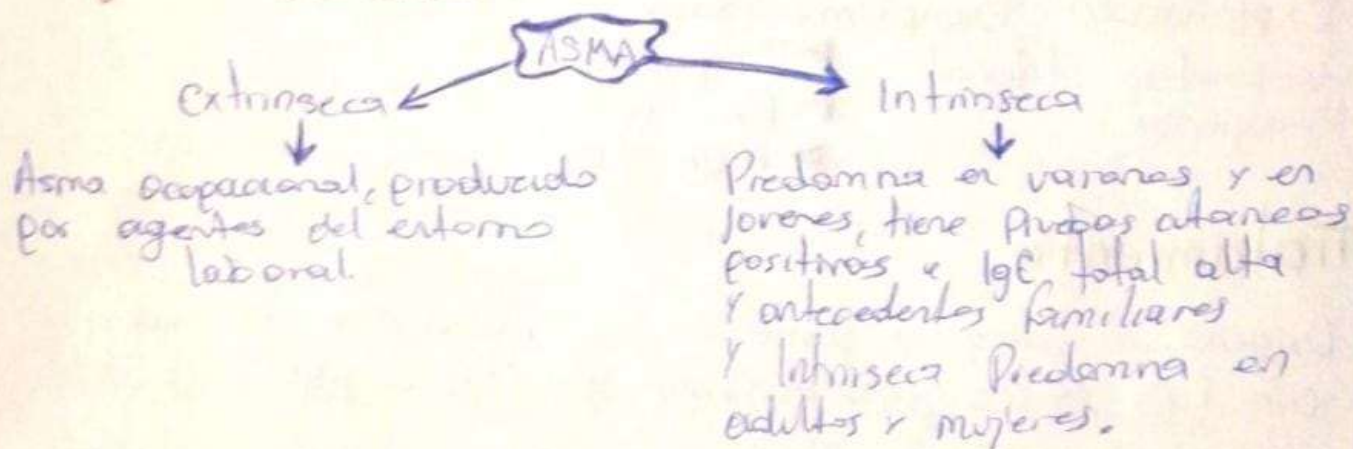 ASMA
Extrinseca
Asma ocupacional, producido
por agentes del entorno
laboral.
Intrinseca
Predomina en varones y en
Jovenes, tiene Pruebas cutaneas
positivas e IgE total alta
Y antecedentes familiares
Y Intrinseca Predomina en
adultos y mujeres.